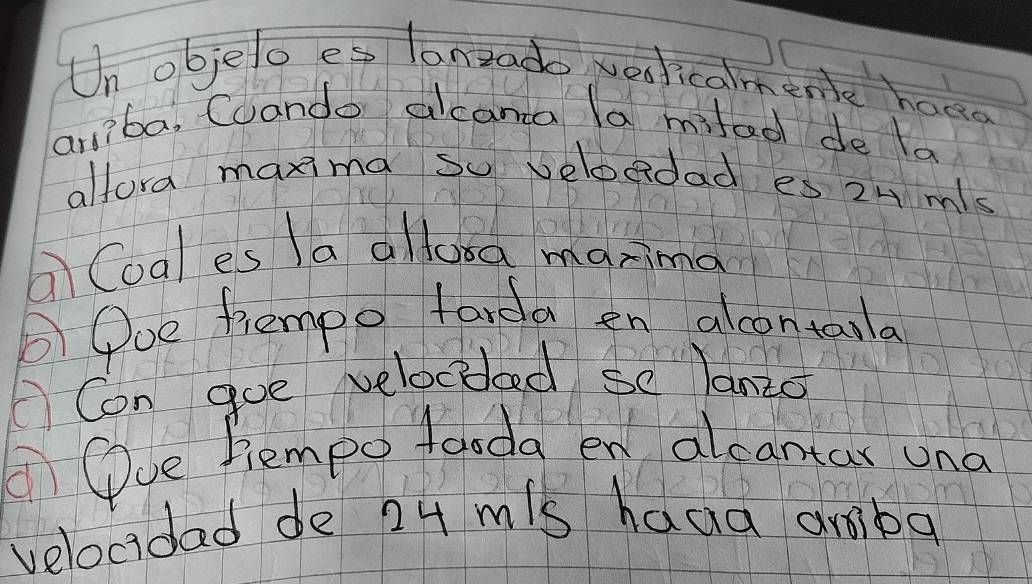 Un objeto es lanzado verticalmente hacia
arriba. Cuando alcanza la mitad de la
altura maxima su velocidad es 24 m/s
a) Cual es la altura maxima
b) Que tiempo tarda en alcanzarla
c) Con que velocidad se lanzó
d) Que tiempo tarda en alcanzar una
velocidad de 24 m/s hacia arriba